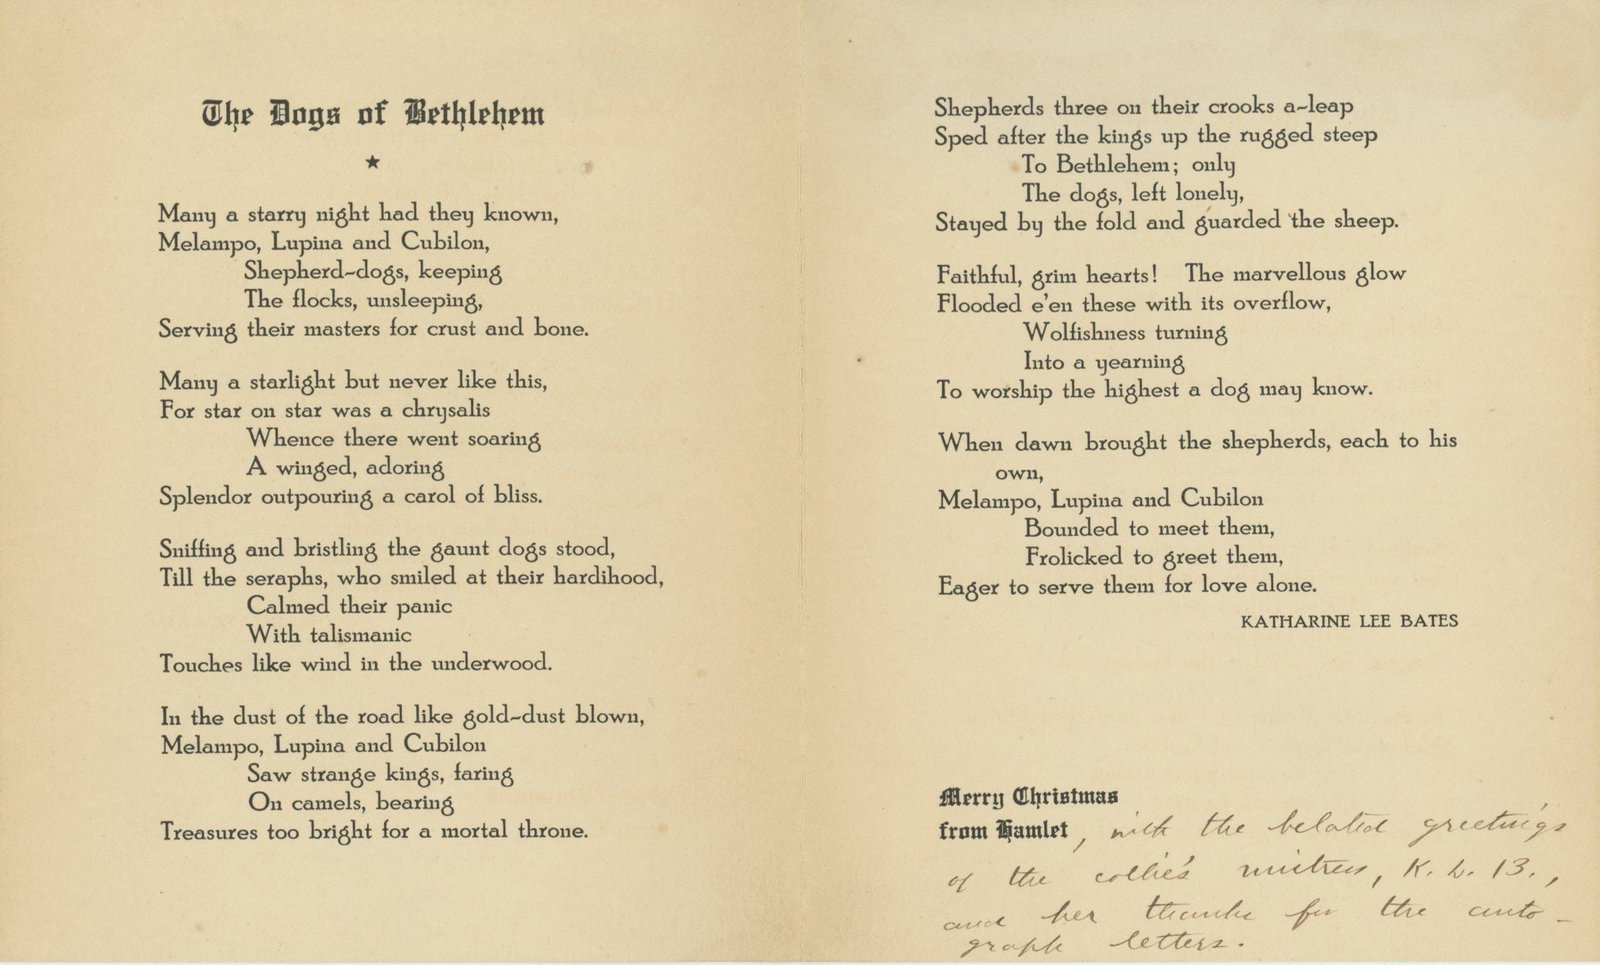 The Dogs of Bethlehem
★
Many a starry night had they known,
Melampo, Lupina and Cubilon,
Shepherd-dogs, keeping
The flocks, unsleeping,
Serving their masters for crust and bone.
Many a starlight but never like this,
For star on star was a chrysalis
Whence there went soaring
A winged, adoring
Splendor outpouring a carol of bliss.
Sniffing and bristling the gaunt dogs stood,
Till the seraphs, who smiled at their hardihood,
Calmed their panic
With talismanic
Touches like wind in the underwood.
In the dust of the road like gold-dust blown,
Melampo, Lupina and Cubilon
Saw strange kings, faring
On camels, bearing
Treasures too bright for a mortal throne.
Shepherds three on their crooks a-leap
Sped after the kings up the rugged steep
To Bethlehem; only
The dogs, left lonely,
Stayed by the fold and guarded the sheep.
Faithful, grim hearts! The marvellous glow
Flooded e'en these with its overflow,
Wolfishness turning
Into a yearning
To worship the highest a dog may know.
When dawn brought the shepherds, each to his
own,
Melampo, Lupina and Cubilon
Bounded to meet them,
Frolicked to greet them,
Eager to serve them for love alone.
KATHARINE LEE BATES
Merry Christmas
from Hamlet, with the belated greetings
of the collie's mistress, K. L. B.,
and her thanks for the auto-
graph letters.